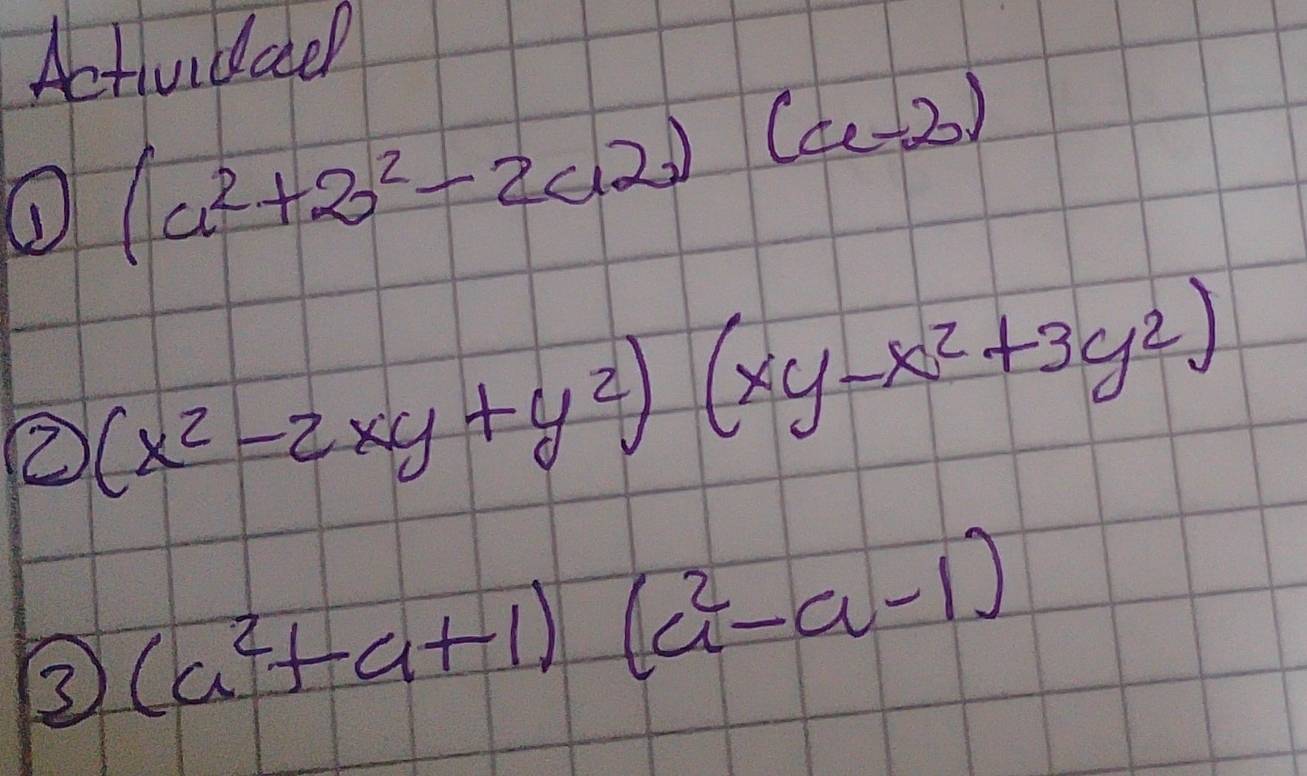 Actividad
① (a²+2²-2a2) (a-2)
② (x²-2xy+y²) (xy-x²+3y²)
③ (a²+a+1) (a²-a-1)